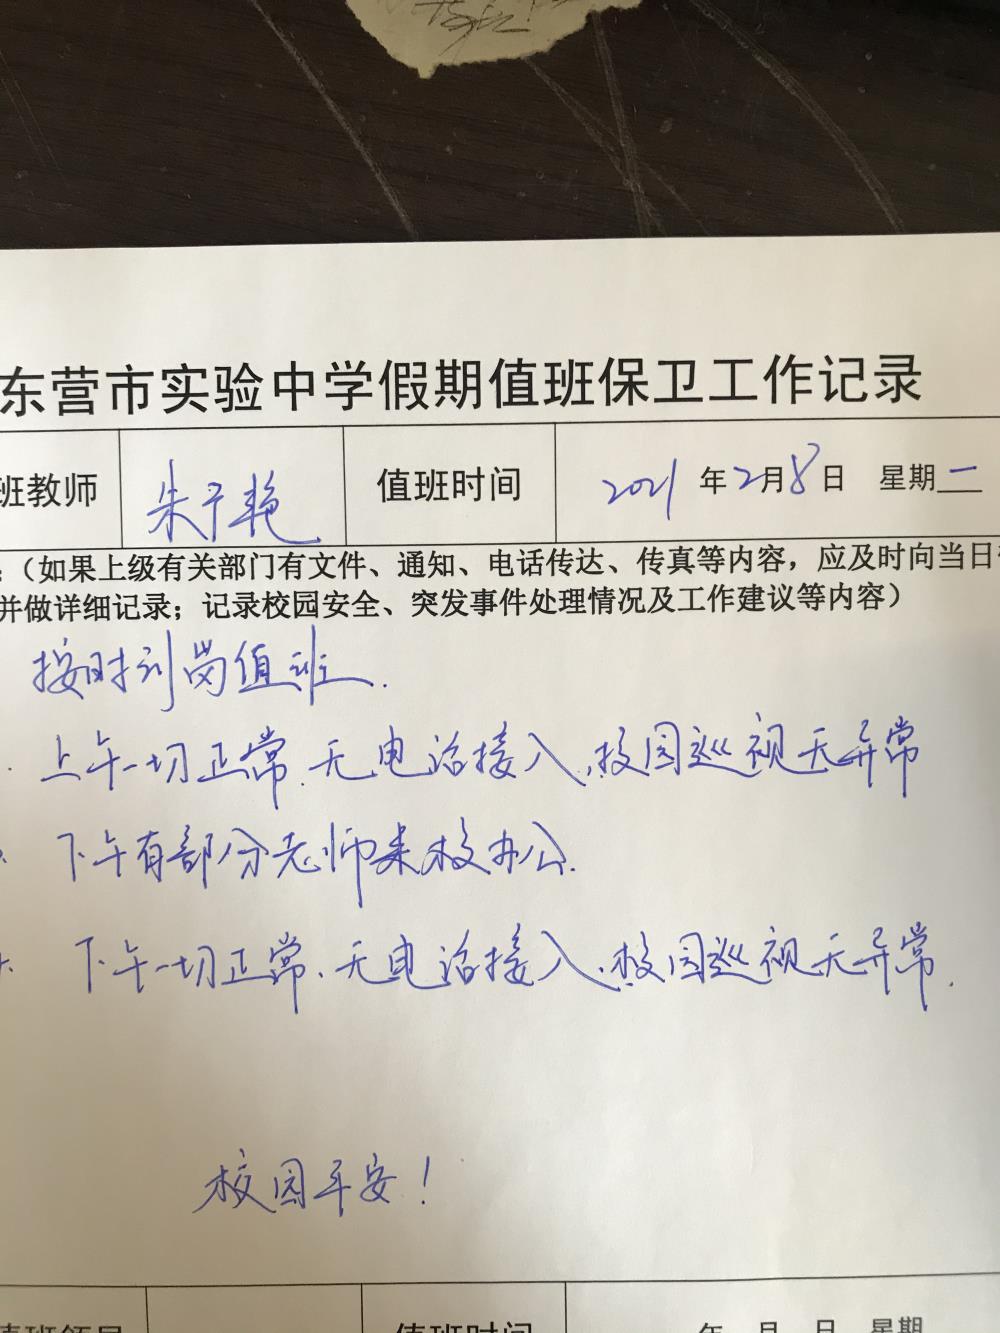 东营市实验中学假期值班保卫工作记录
班教师 朱于艳 值班时间 2021年2月8日 星期一
:（如果上级有关部门有文件、通知、电话传达、传真等内容，应及时向当日
并做详细记录；记录校园安全、突发事件处理情况及工作建议等内容）
按时到岗值班.
上午一切正常.无电话接入,校园巡视无异常
下午有部分老师来校办公.
下午一切正常.无电话接入,校园巡视无异常.
校园平安!
值班领导 值班时间 年 月 日 星期